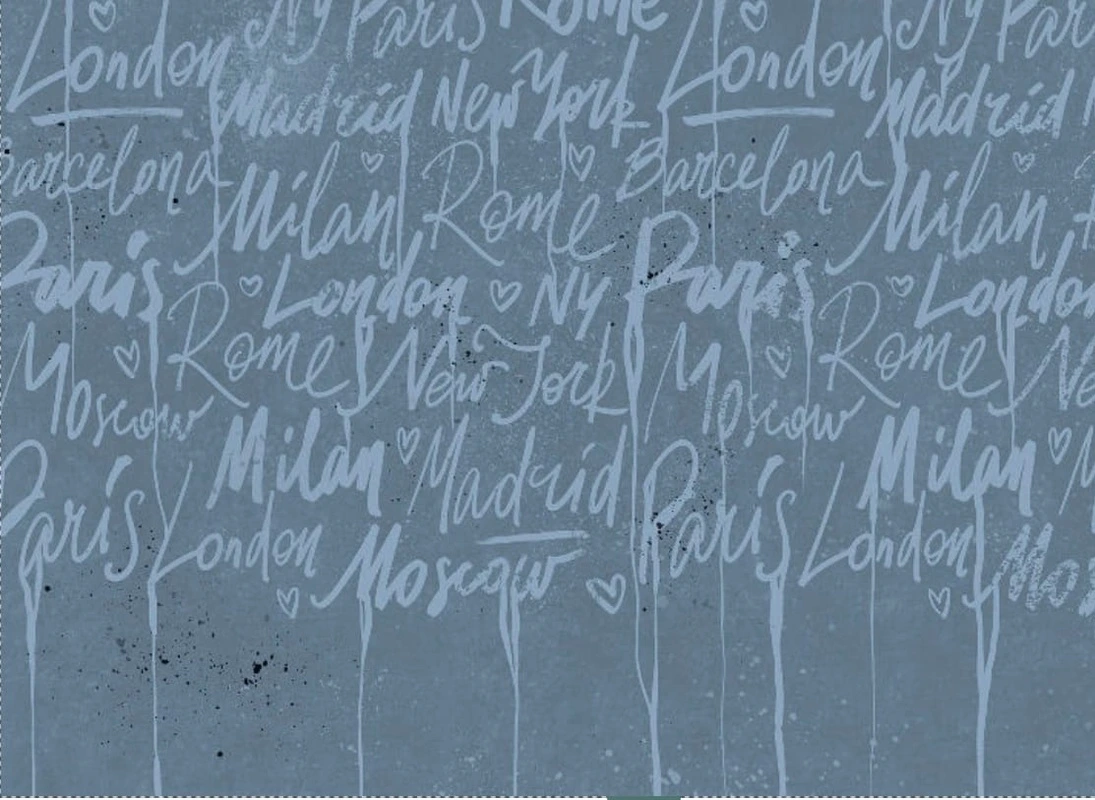 Ny Paris Rome Ny Par
London London
Madrid New York Madrid
Barcelona Milan Rome Barcelona Milan
Paris London Ny Paris London
Moscow Rome New York Moscow Rome Ne
Milan Madrid Milan M
Paris London Moscow Paris London Mos